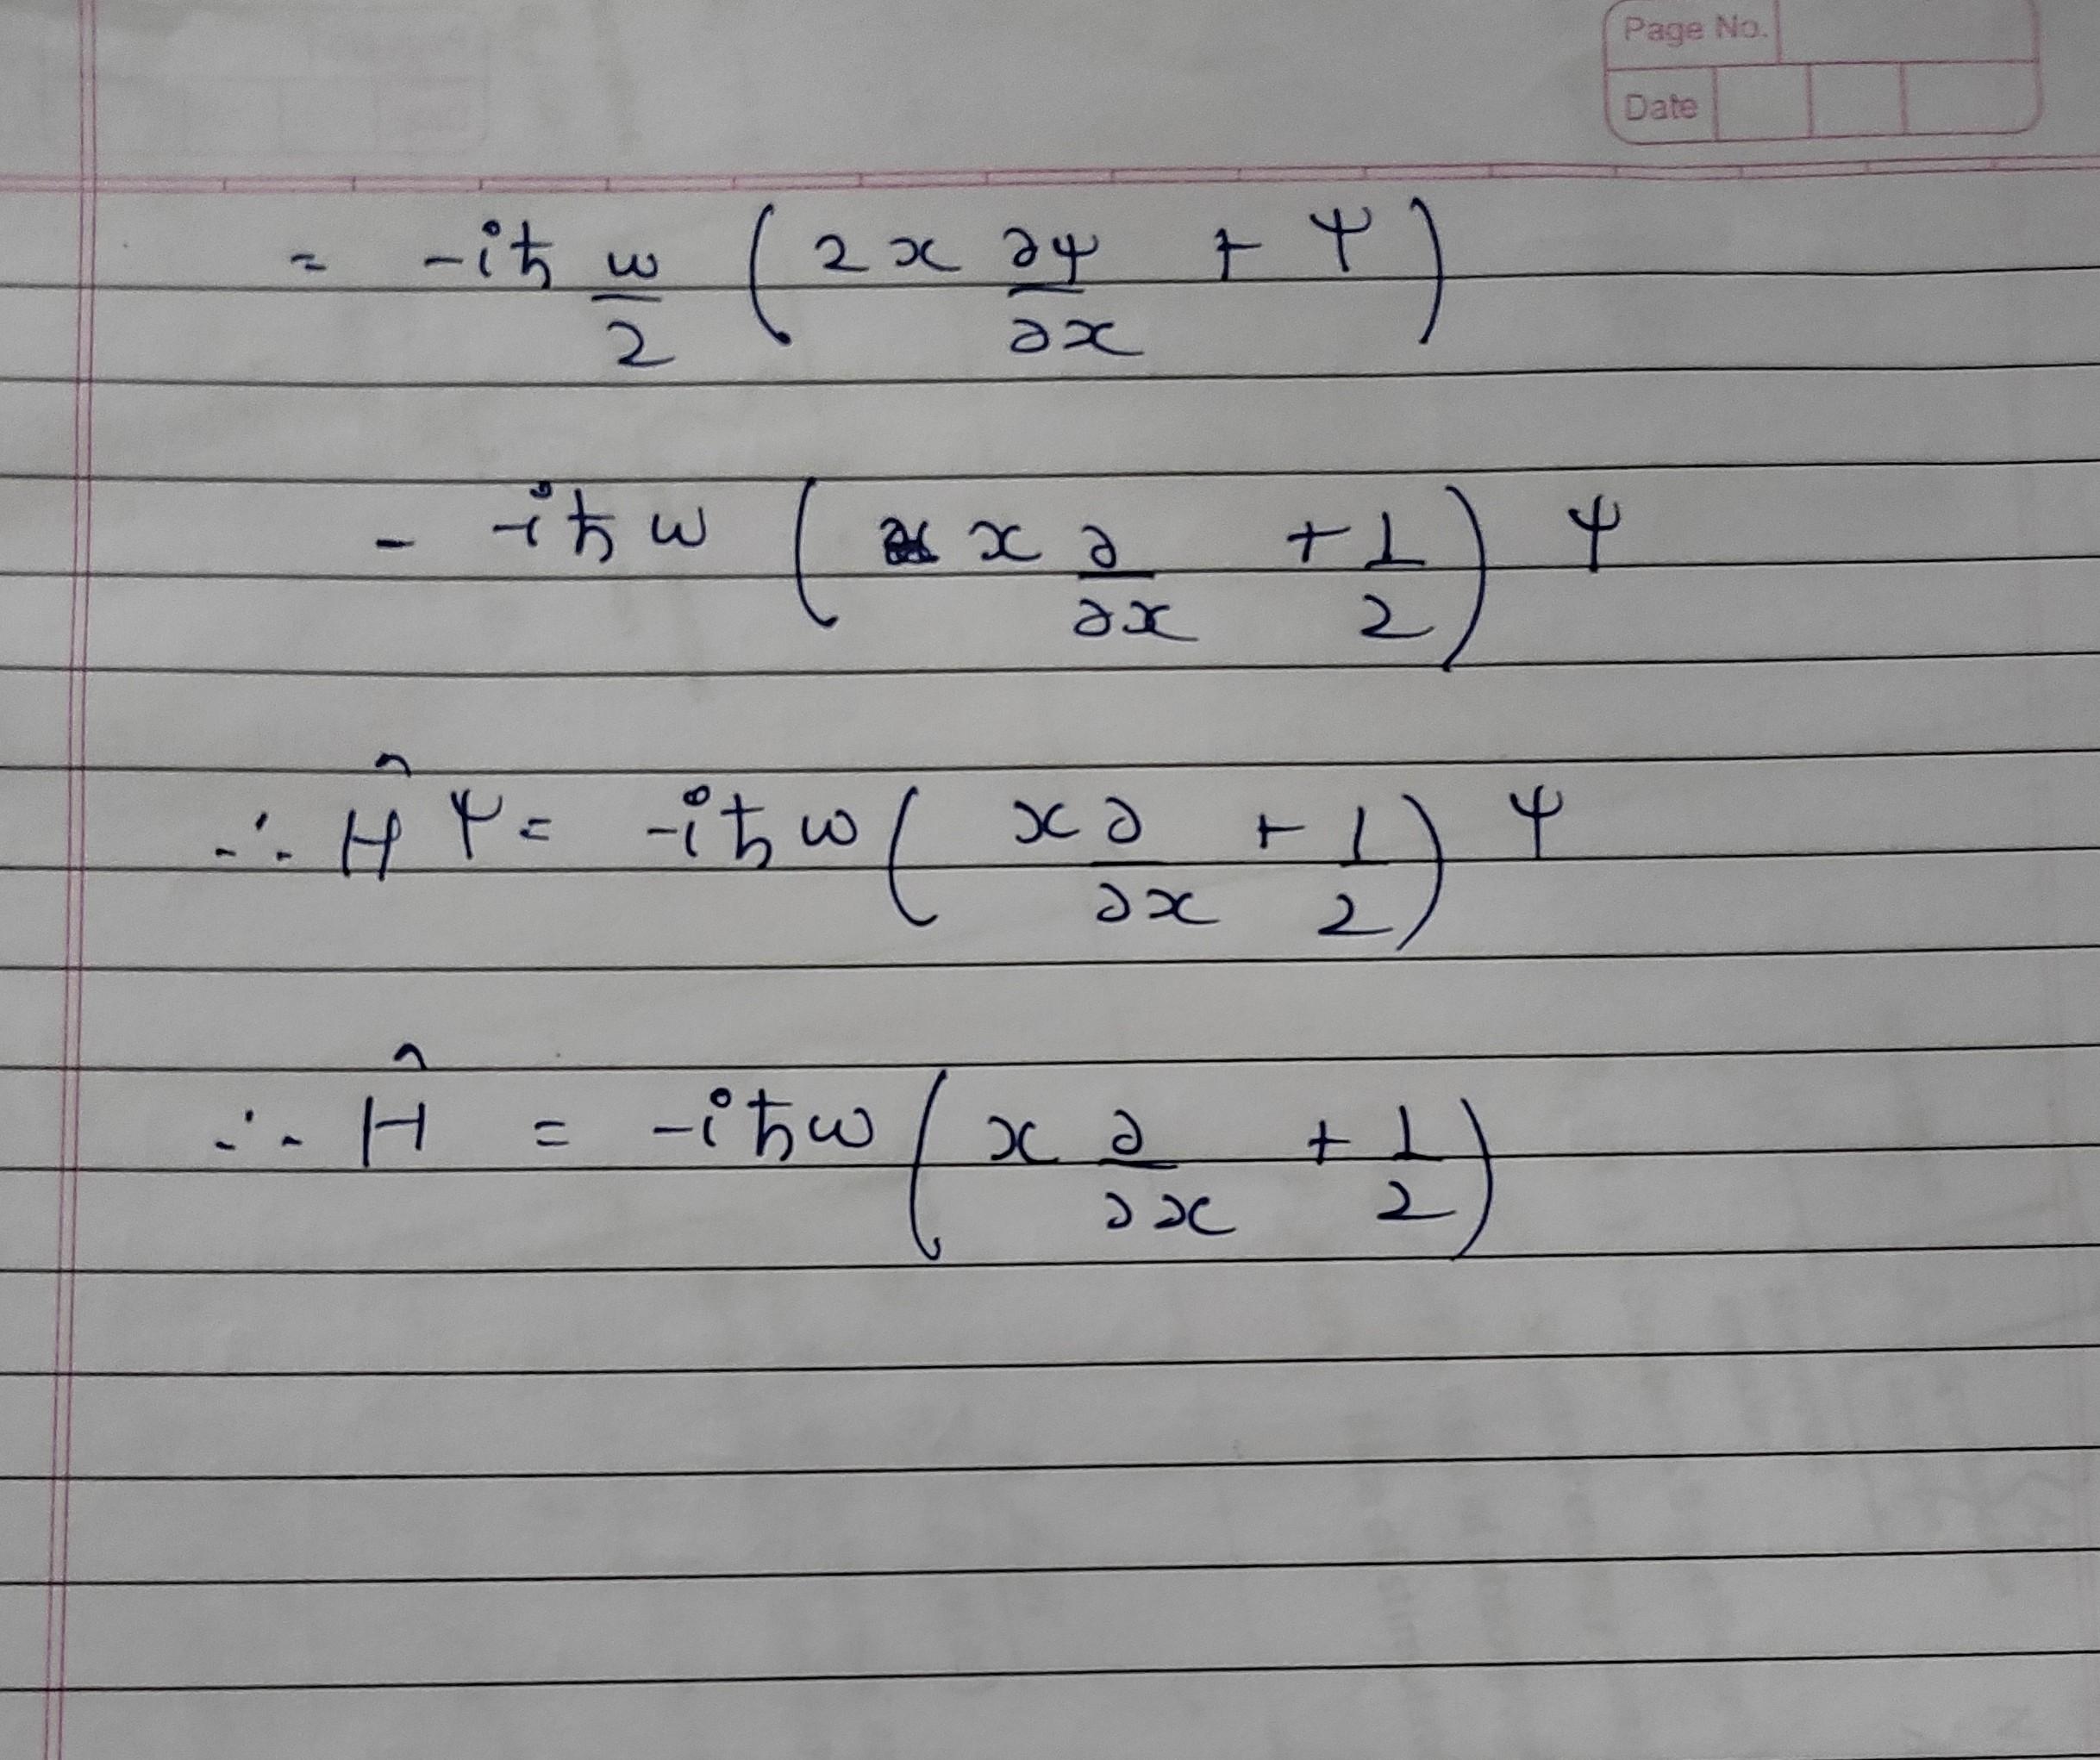 Page No.
Date
= -iħ ω/2 (2x ∂ψ/∂x + ψ)
- -iħω (x ∂/∂x + 1/2) ψ
∴ Ĥψ = -iħω (x∂/∂x + 1/2) ψ
∴ Ĥ = -iħω (x ∂/∂x + 1/2)